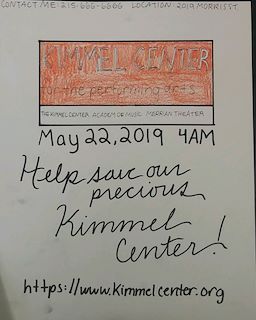 CONTACT ME: 215-666-6666 LOCATION: 2019 MORRIS ST
KIMMEL CENTER
for the performing arts
THE KIMMEL CENTER ACADEMY OF MUSIC MERRIAN THEATER
May 22, 2019 4AM
Help save our
precious
Kimmel
Center!
https://www.kimmelcenter.org